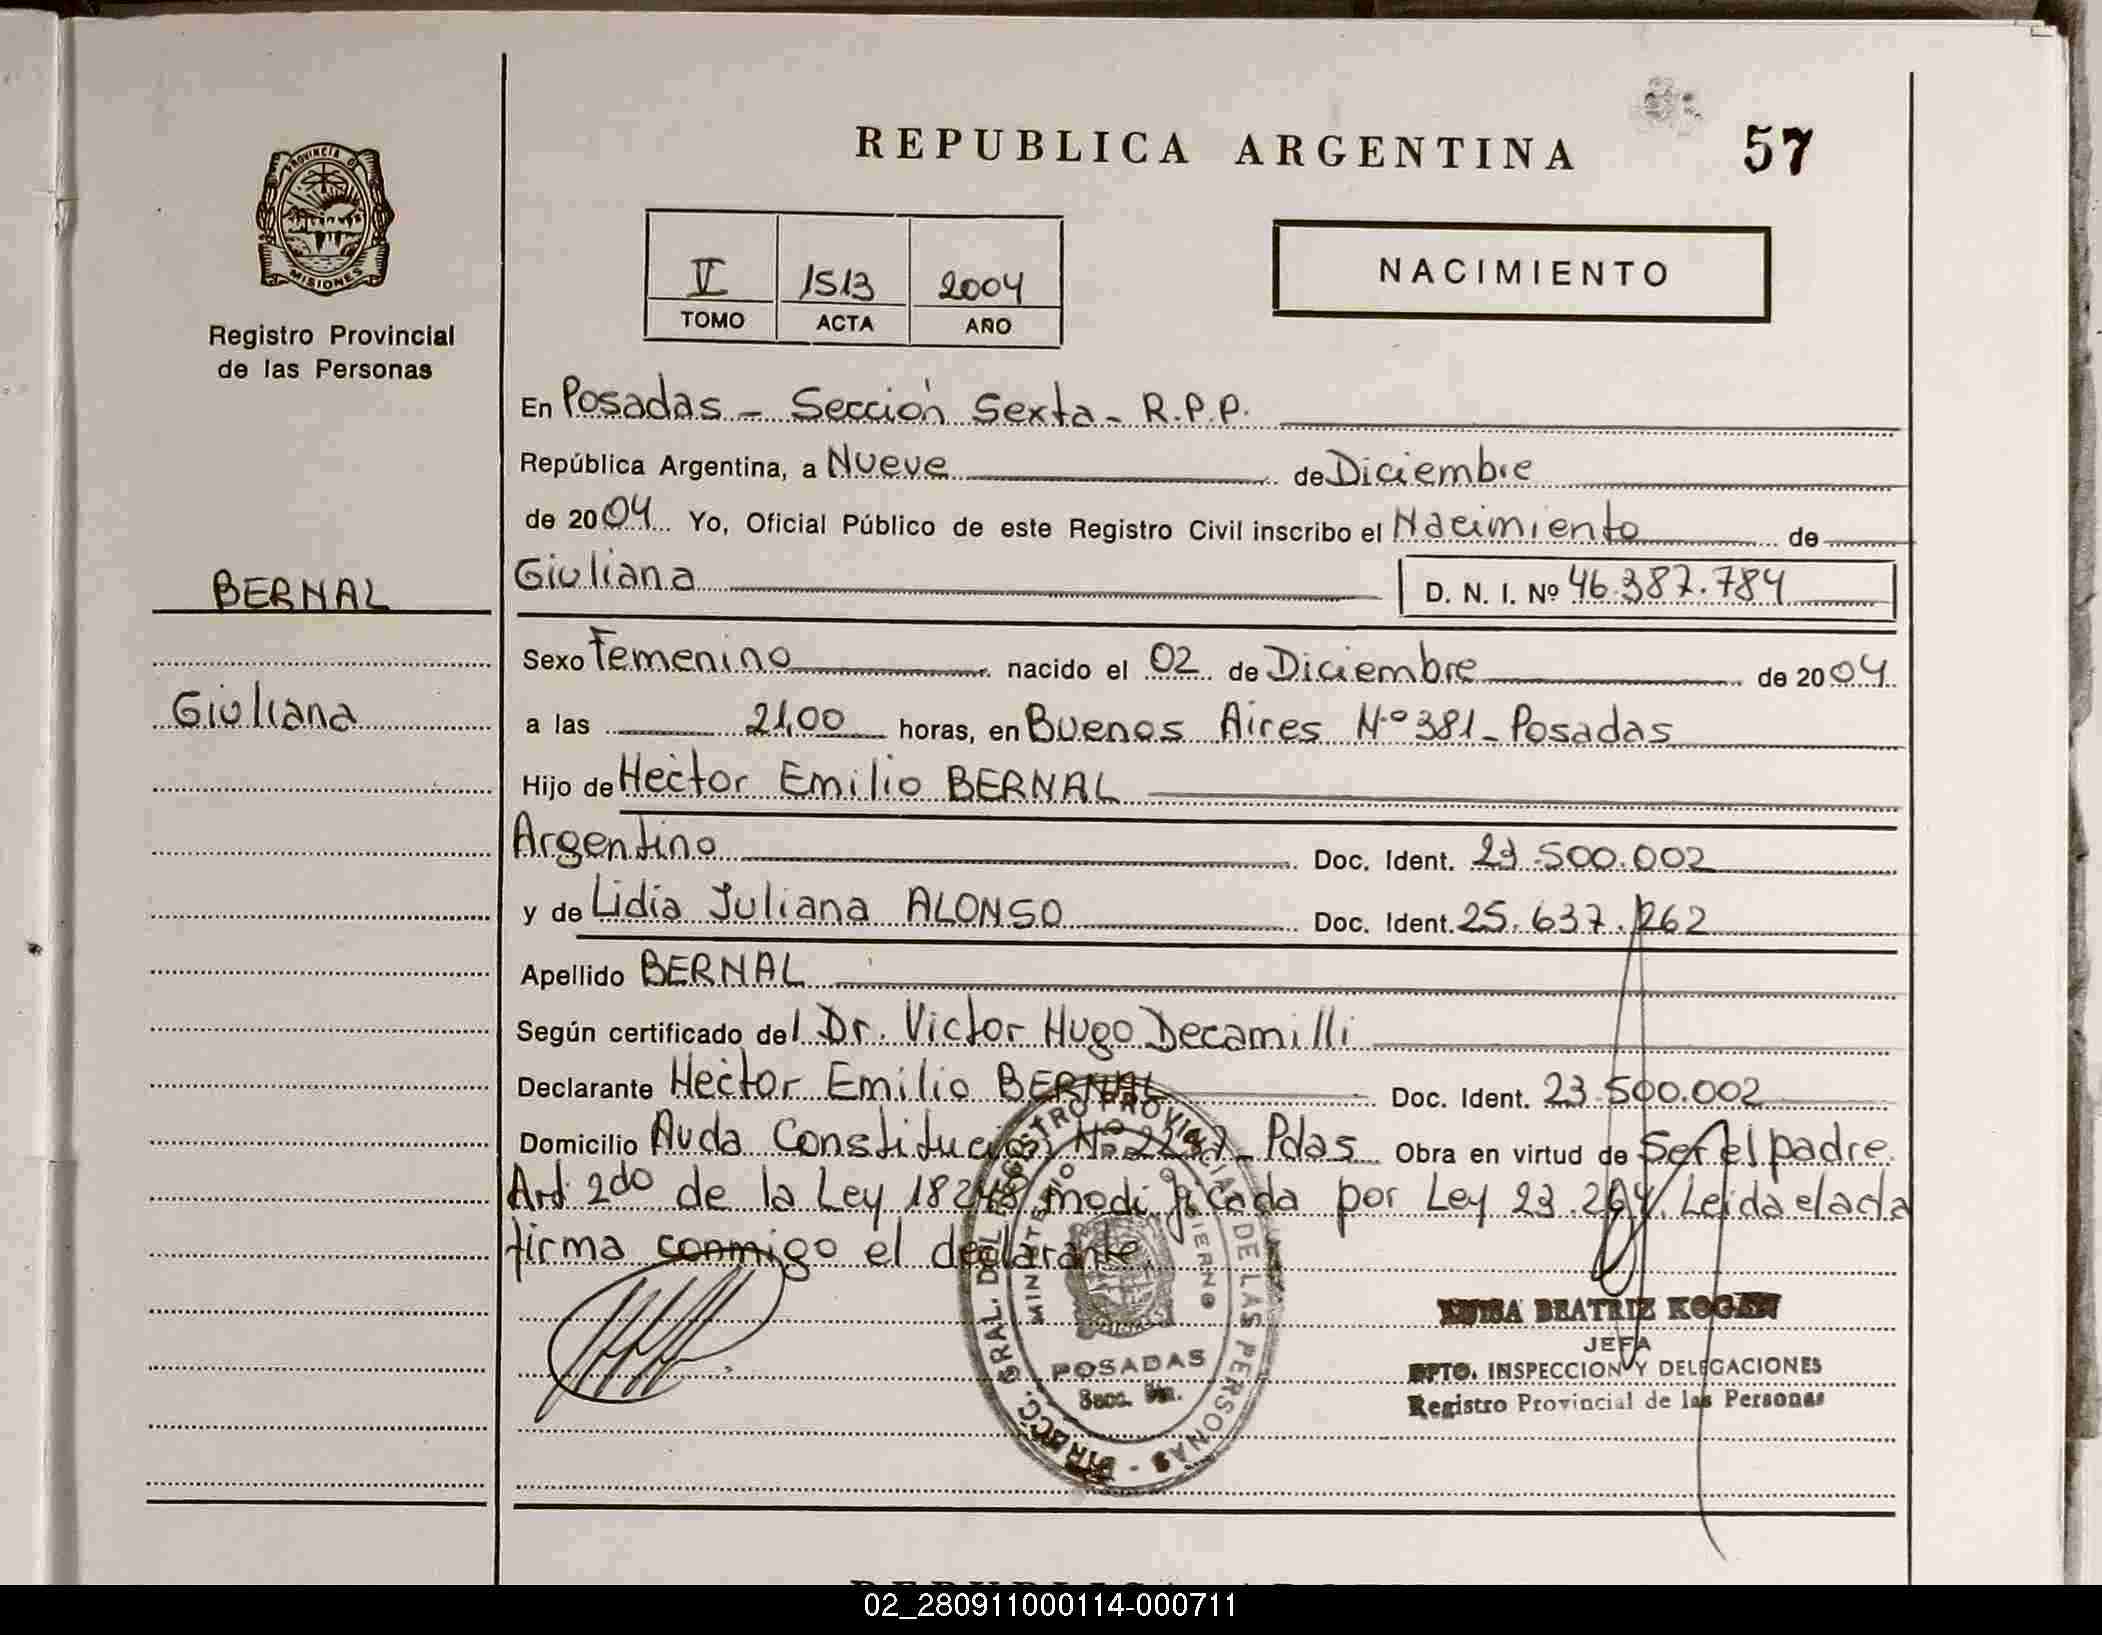 REPUBLICA ARGENTINA 57
PROVINCIA DE
MISIONES
Registro Provincial
de las Personas
V 1513 2004
TOMO ACTA AÑO
NACIMIENTO
En Posadas - Sección Sexta - R.P.P.
República Argentina, a Nueve de Diciembre
de 2004 Yo, Oficial Público de este Registro Civil inscribo el Nacimiento de
BERNAL
Giuliana D. N. I. Nº 46.387.784
Sexo Femenino nacido el 02 de Diciembre de 2004
Giuliana
a las 21,00 horas, en Buenos Aires Nº 381 - Posadas
Hijo de Hector Emilio BERNAL
Argentino Doc. Ident. 23.500.002
y de Lidia Juliana ALONSO Doc. Ident. 25.637.262
Apellido BERNAL
Según certificado del Dr. Victor Hugo Decamilli
Declarante Hector Emilio BERNAL Doc. Ident. 23.500.002
Domicilio Avda Constitución Nº - Pdas Obra en virtud de Ser el padre
Art. 2do de la Ley 18248 modificada por Ley 23.264. Leida el acta
firma conmigo el declarante.
DIRECC. GRAL. DEL REGISTRO PROVINCIAL DE LAS PERSONAS
MINISTERIO GOBIERNO
POSADAS
Secc.
BEATRIZ KOGAN
JEFA
DPTO. INSPECCION Y DELEGACIONES
Registro Provincial de las Personas
02_280911000114-000711